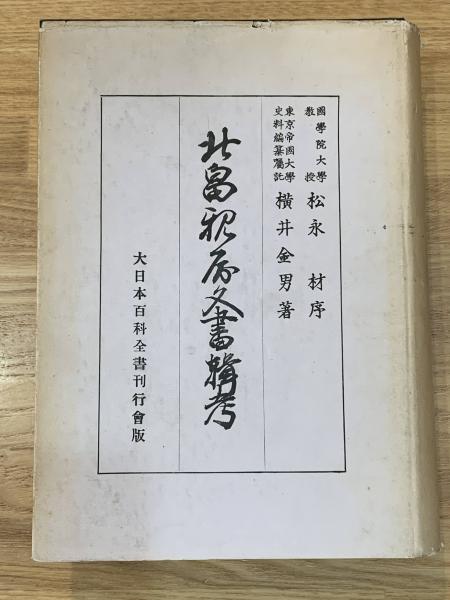 國學院大學
教授
松永材序
東京帝國大學
史料編纂囑託
橫井金男著
北畠親房文書輯考
大日本百科全書刊行會版